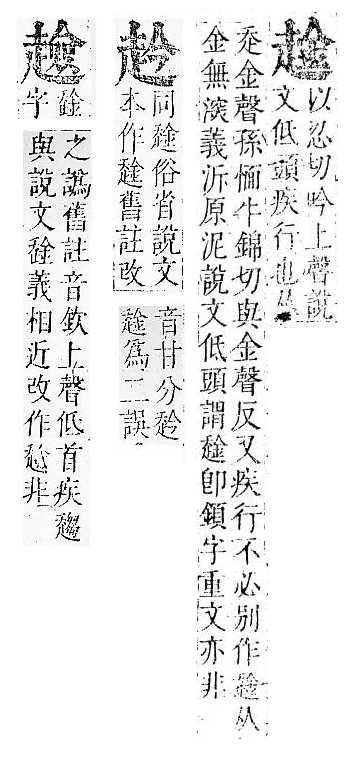 趛
以忍切吟上聲說
文低頭疾行也从
走金聲孫愐牛錦切與金聲反又疾行不必別作趛从
金無演義泝原泥說文低頭謂趛卽顉字重文亦非
赺
同趛俗省說文
本作趛舊註改
音甘分赺
趛為二誤
趝
趛
字
之譌舊註音欽上聲低首疾趨
與說文趛義相近改作趝非